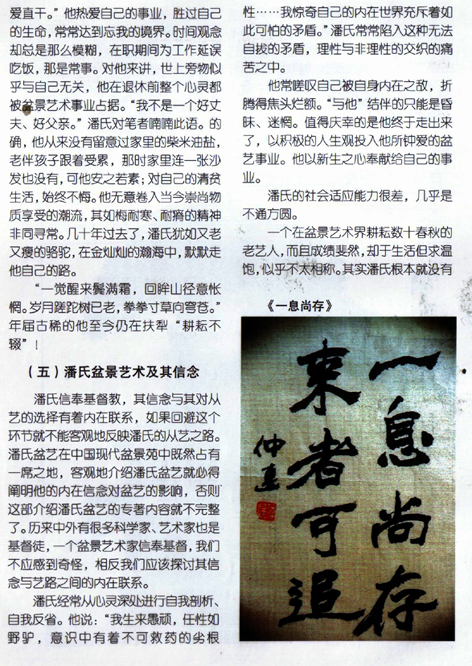 爱直干。”他热爱自己的事业，胜过自己
的生命，常常达到忘我的境界。时间观念
却总是那么模糊，在职期间为工作延误
吃饭，那是常事。对他来讲，世上旁物似
乎与自己无关，他在退休前整个心灵都
被盆景艺术事业占据。“我不是一个好丈
夫、好父亲。”潘氏对笔者喃喃此语。的
确，他从来没有留意过家里的柴米油盐，
老伴孩子跟着受累，那时家里连一张沙
发也没有，可他安之若素；对自己的清贫
生活，始终不悔。他无意卷入当今崇尚物
质享受的潮流，其如梅耐寒、耐瘠的精神
非同寻常。几十年过去了，潘氏犹如又老
又瘦的骆驼，在金灿灿的瀚海中，默默走
他自己的路。
“一觉醒来鬓满霜，回眸山径意怅
惘。岁月蹉跎树已老，拳拳寸草向穹苍。”
年届古稀的他至今仍在扶犁“耕耘不
辍”！
（五）潘氏盆景艺术及其信念
潘氏信奉基督教，其信念与其对从
艺的选择有着内在联系，如果回避这个
环节就不能客观地反映潘氏的从艺之路。
潘氏盆艺在中国现代盆景苑中既然占有
一席之地，客观地介绍潘氏盆艺就必得
阐明他的内在信念对盆艺的影响，否则
这部介绍潘氏盆艺的专著内容就不完整
了。历来中外有很多科学家、艺术家也是
基督徒，一个盆景艺术家信奉基督，我们
不应感到奇怪，相反我们应该探讨其信
念与艺路之间的内在联系。
潘氏经常从心灵深处进行自我剖析、
自我反省。他说：“我生来愚顽，任性如
野驴，意识中有着不可救药的劣根
性……我惊奇自己的内在世界充斥着如
此可怕的矛盾。”潘氏常常陷入这种无法
自拔的矛盾，理性与非理性的交织的痛
苦之中。
他常嗟叹自己被自身内在之敌，折
腾得焦头烂额。“与他”结伴的只能是昏
昧、迷惘。值得庆幸的是他终于走出来
了，以积极的人生观投入他所钟爱的盆
艺事业。他以新生之心奉献给自己的事
业。
潘氏的社会适应能力很差，几乎是
不通方圆。
一个在盆景艺术界耕耘数十春秋的
老艺人，而且成绩斐然，却于生活但求温
饱，似乎不太相称。其实潘氏根本就没有
《一息尚存》
一息尚存
来者可追